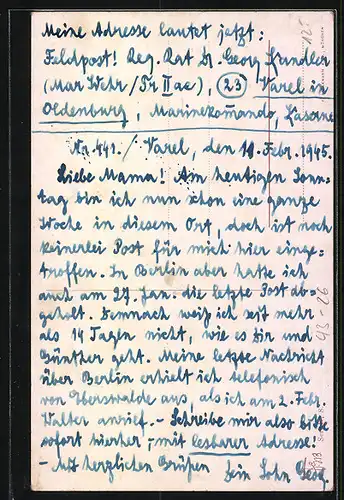 Meine Adresse lautet jetzt:
Feldpost! Reg. Rat Dr. Georg
(Mar Wehr / Tr II ae), (23) Varel in
Oldenburg, Marinekom̄ando, Kaserne
Nr. 441. / Varel, den 18. Febr. 1945.
Liebe Mama! Am heutigen Sonn-
tag bin ich nun schon eine ganze
Woche in diesem Ort, doch ist noch
keinerlei Post für mich hier einge-
troffen. In Berlin aber hatte ich
auch am 27. Jan. die letzte Post ab-
geholt. Demnach weiß ich seit mehr
als 14 Tagen nicht, wie es Dir und
Günther geht. Meine letzte Nachricht
über Berlin erhielt ich telefonisch
von Eberswalde aus, als ich am 2. Febr.
Walter anrief. – Schreibe mir also bitte
sofort hierher, – mit lesbarer Adresse!
– Mit herzlichen Grüßen Dein Sohn Georg.
12,-
93-26